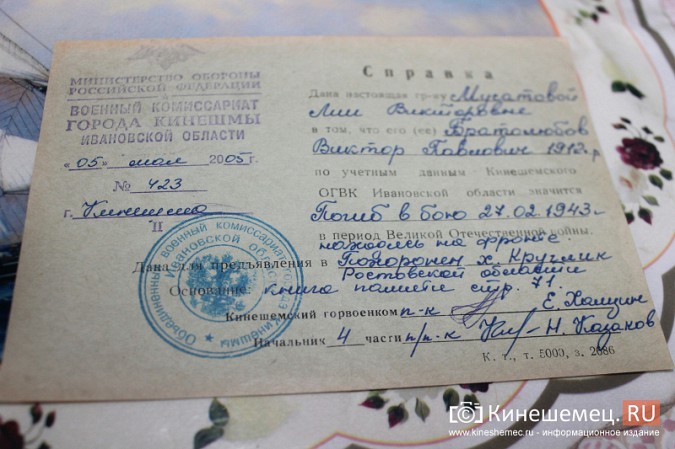 МИНИСТЕРСТВО ОБОРОНЫ
РОССИЙСКОЙ ФЕДЕРАЦИИ
ВОЕННЫЙ КОМИССАРИАТ
ГОРОДА КИНЕШМЫ
ИВАНОВСКОЙ ОБЛАСТИ
«05» мая 2005г.
№ 423
г. Кинешма
Справка
Дана настоящая гр-ну Мусатовой
Лии Викторовне
в том, что его (ее) Братолюбов
Виктор Павлович 1912 г.р
по учетным данным Кинешемского
ОГВК Ивановской области значится
Погиб в бою 27.02.1943г
в период Великой Отечественной войны.
находясь на фронте.
Дана для предъявления в Похоронен х. Круглик
Ростовской области
Основание: книга памяти стр. 71
Кинешемский горвоенком п-к Е. Хапцин
Начальник 4 части п/п-к Н. Казаков
К. т., т. 5000, з. 2686
Объединенный военный комиссариат города Кинешмы
Ивановской области
Кинешемец.RU
www.kineshemec.ru - информационное издание